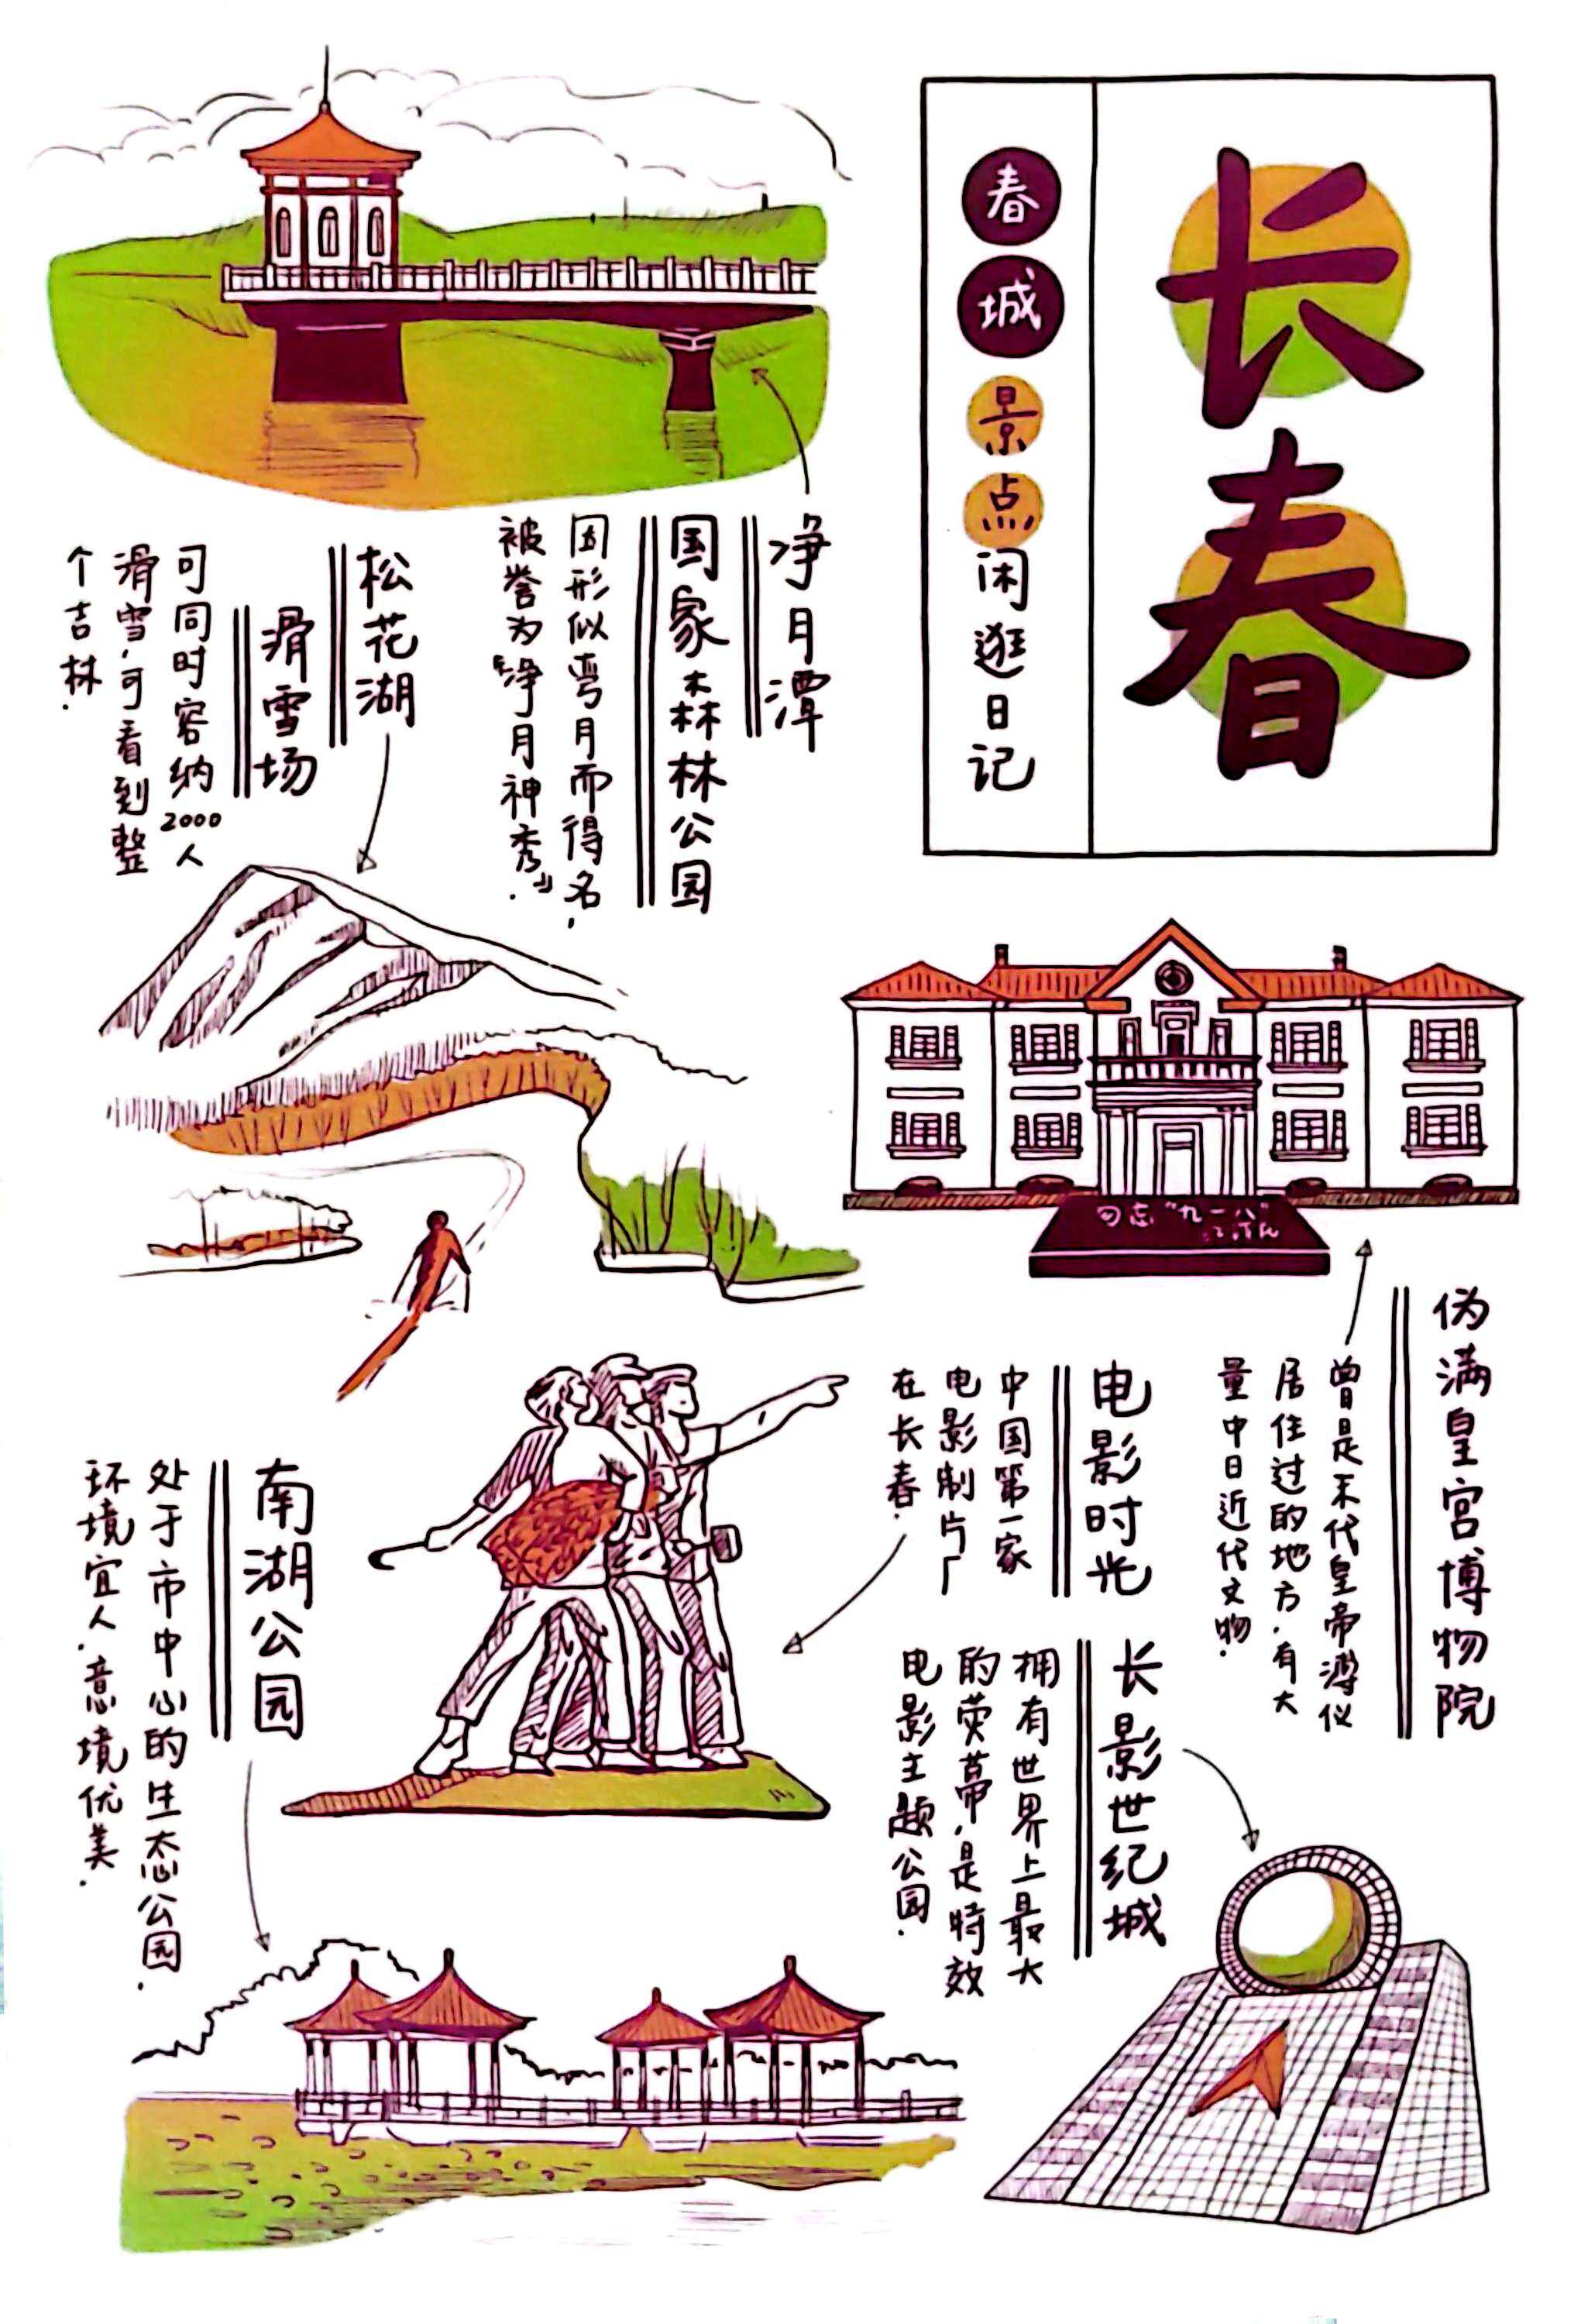 长春
春城景点闲逛日记
净月潭
国家森林公园
因形似弯月而得名,
被誉为“净月神秀”.
松花湖
滑雪场
可同时容纳2000人
滑雪,可看到整
个吉林.
勿忘“九一八”
伪满皇宫博物院
曾是末代皇帝溥仪
居住过的地方.有大
量中日近代文物.
电影时光
中国第一家
电影制片厂
在长春.
长影世纪城
拥有世界上最大
的荧幕,是特效
电影主题公园.
南湖公园
处于市中心的生态公园.
环境宜人.意境优美.